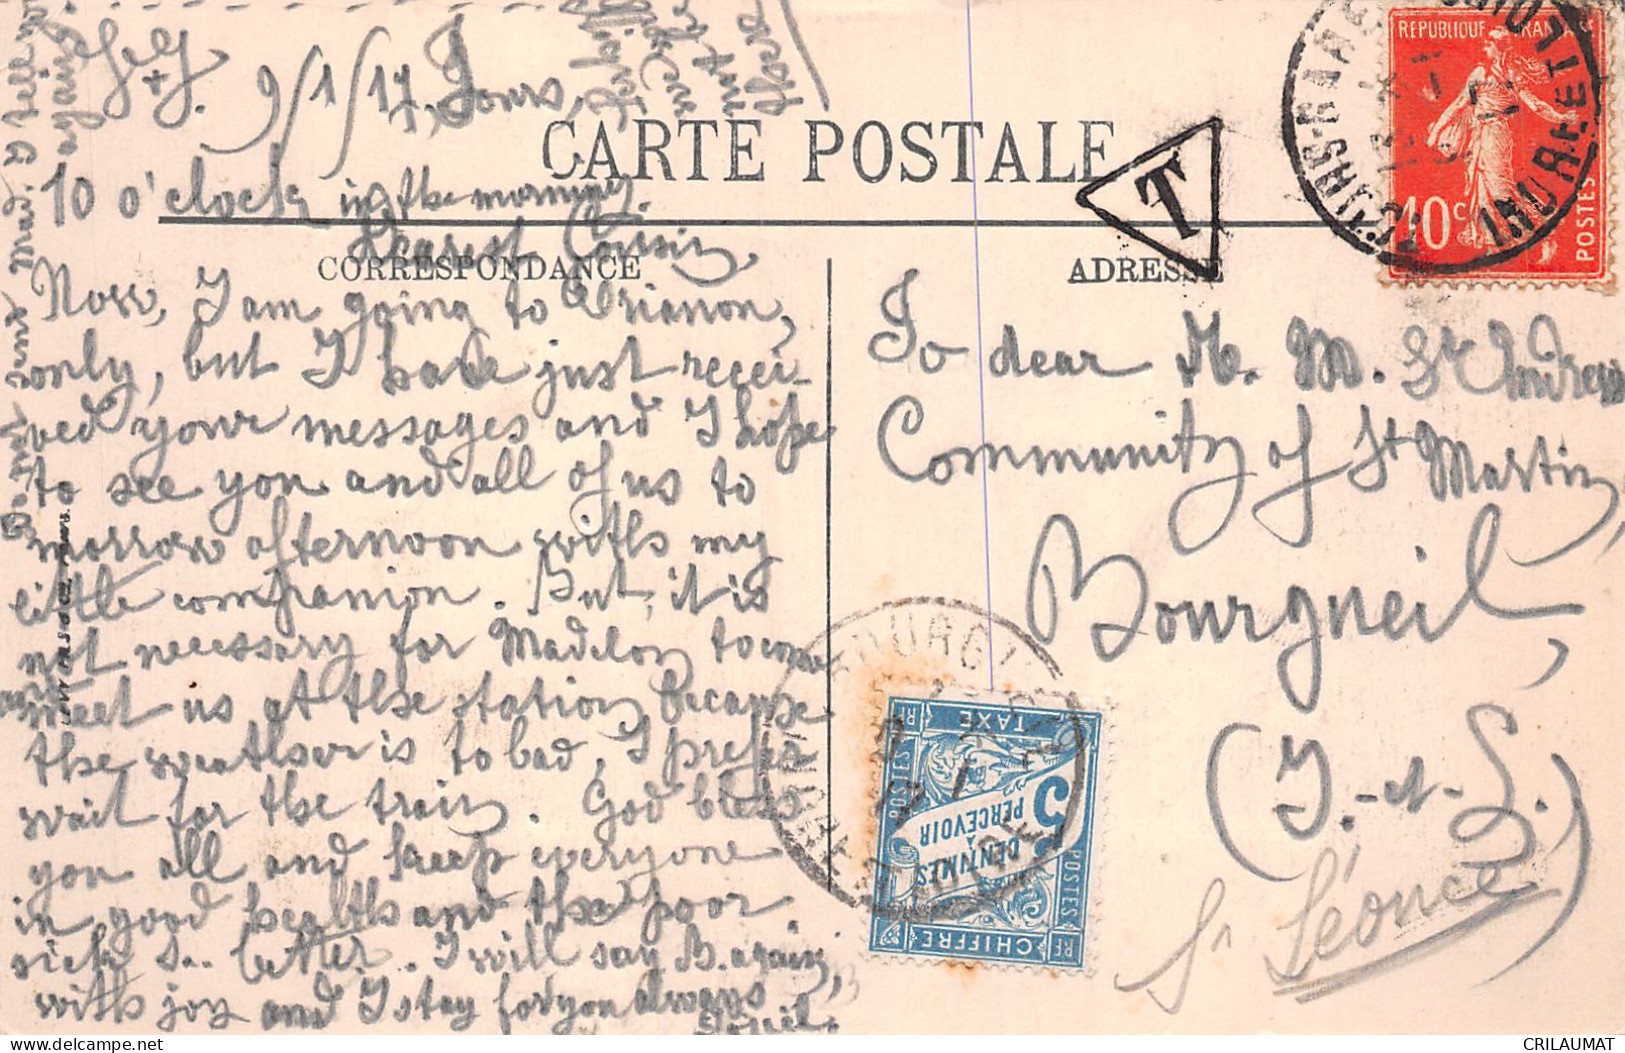 9/1/17, Tours,
CARTE POSTALE
10 o'clock in the morning.
Dearest Cousin,
CORRESPONDANCE
Now, I am going to Trianon,
only, but I have just recei-
ved your messages and I hope
to see you and all of us to
morrow afternoon with my
little companion. But, it is
not necessary for Madelon to come
meet us at the station because
the weather is to bad, I prefer
wait for the train. God bless
you all and keep everyone
in good health and the poor
sick S.. better. I will say B. again,
with joy and I stay for you always
ADRESSE
T
REPUBLIQUE FRANÇAISE
10c
POSTES
INDRE ET
To dear M. M. St Andrew
Community of St Martin,
Bourgueil,
(I.-et-L.)
Sr Léonce
TAXE
5
CENTIMES
A
PERCEVOIR
POSTES
CHIFFRE
RF
again
CRILAUMAT